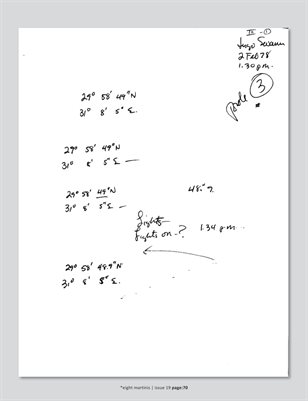 IV - ①
Ingo Swann
2 Feb 78
1.30 p.m.
pode ③
29° 58' 49"N
31° 8' 5" E.
29° 58' 49"N
31° 8' 5" E —
29° 58' 49"N
31° 8' 5" E —
48."?
Lights
Lights on.? 1.34 p.m.
29° 58' 48.9"N
31° 8' 5" E.
"eight martinis | issue 19 page:70